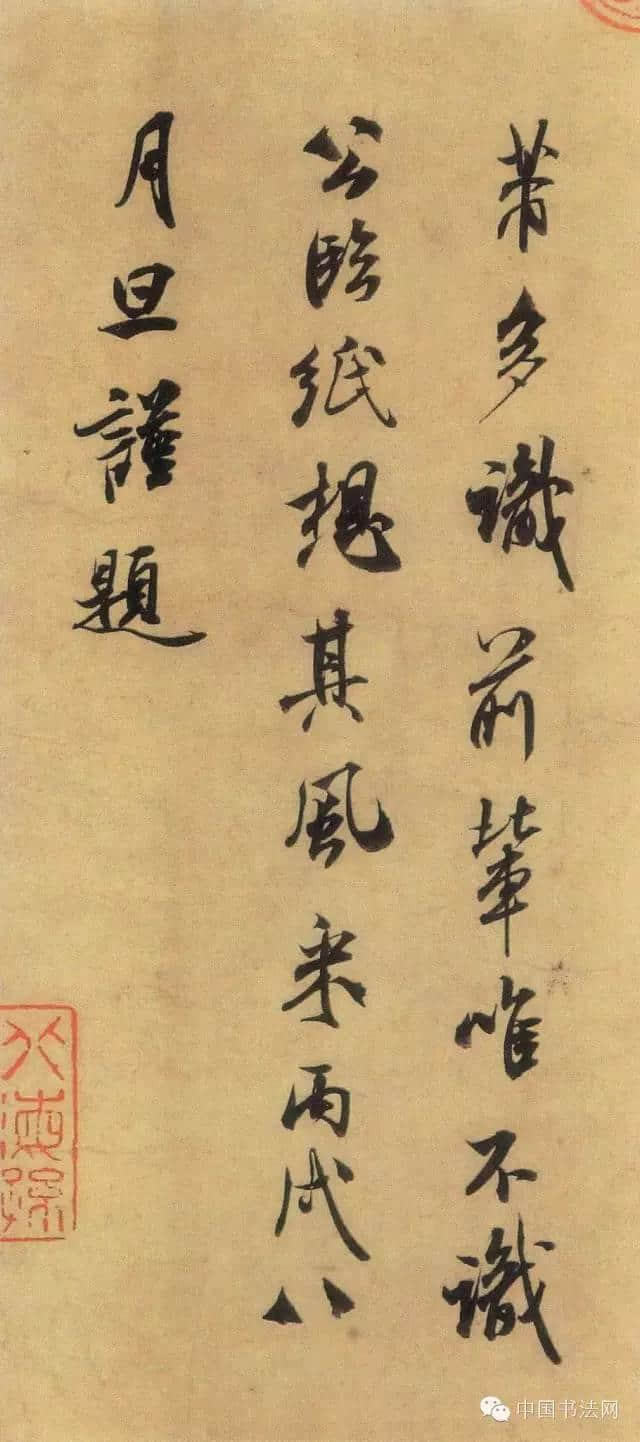 芾多識前輩唯不識
公臨紙想其風采丙戌八
月旦謹題
中国书法网